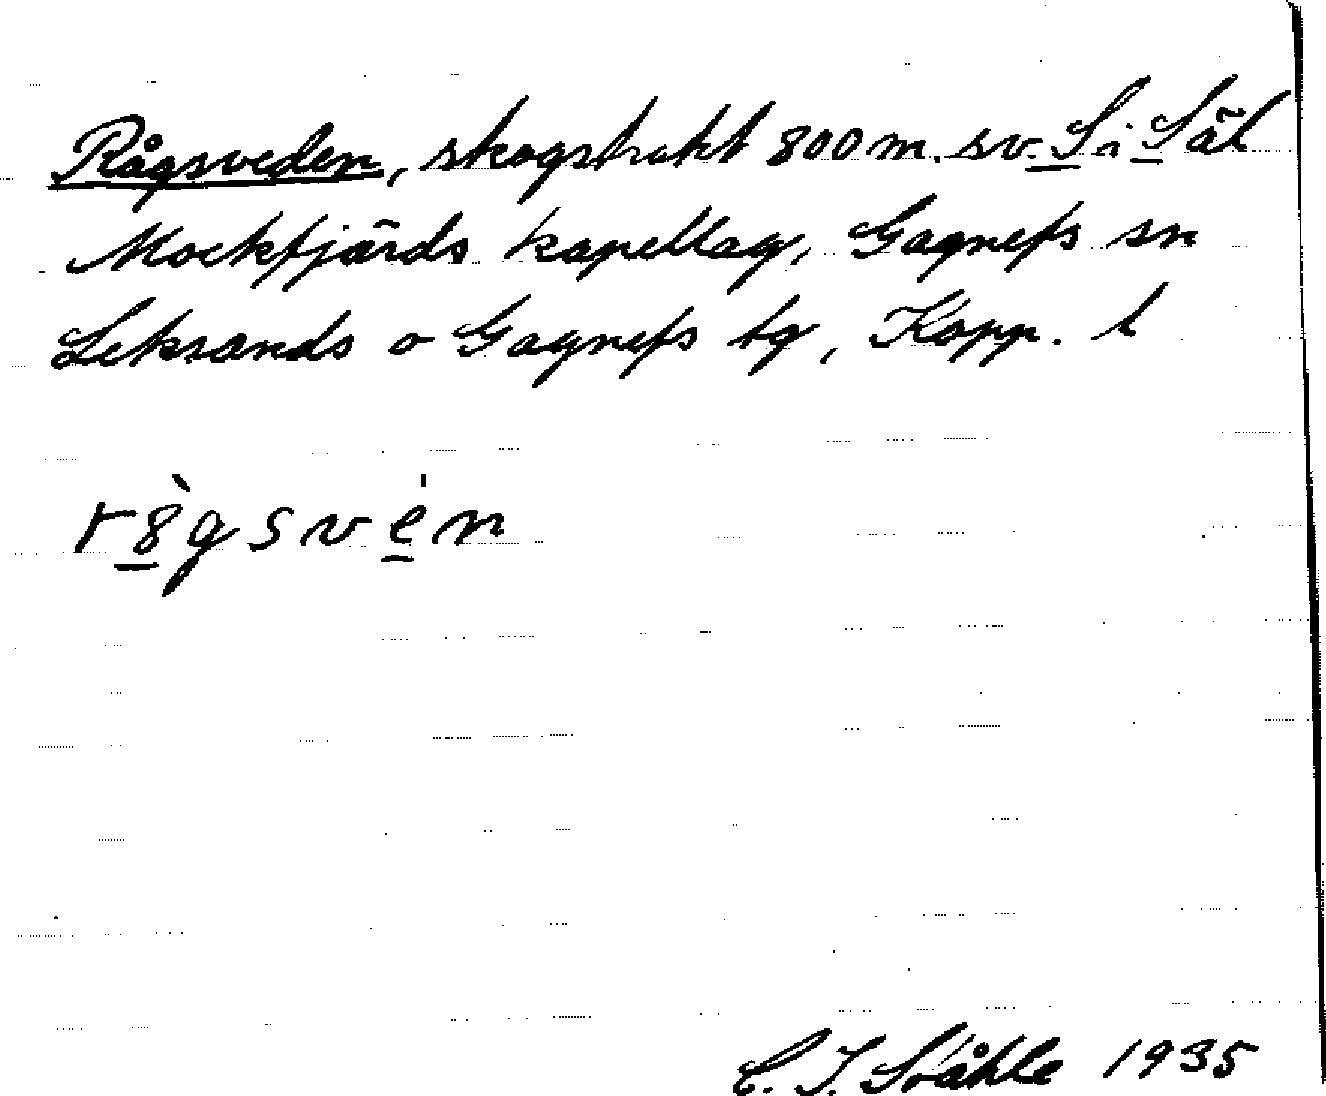 Rågsveden, skogstrakt 800 m. sv. S i Säl
Mockfjärds kapellag, Gagnefs sn
Leksands o Gagnefs tg, Kopp. l
r8̲̀gsvé̲n
C. I. Ståhle 1935